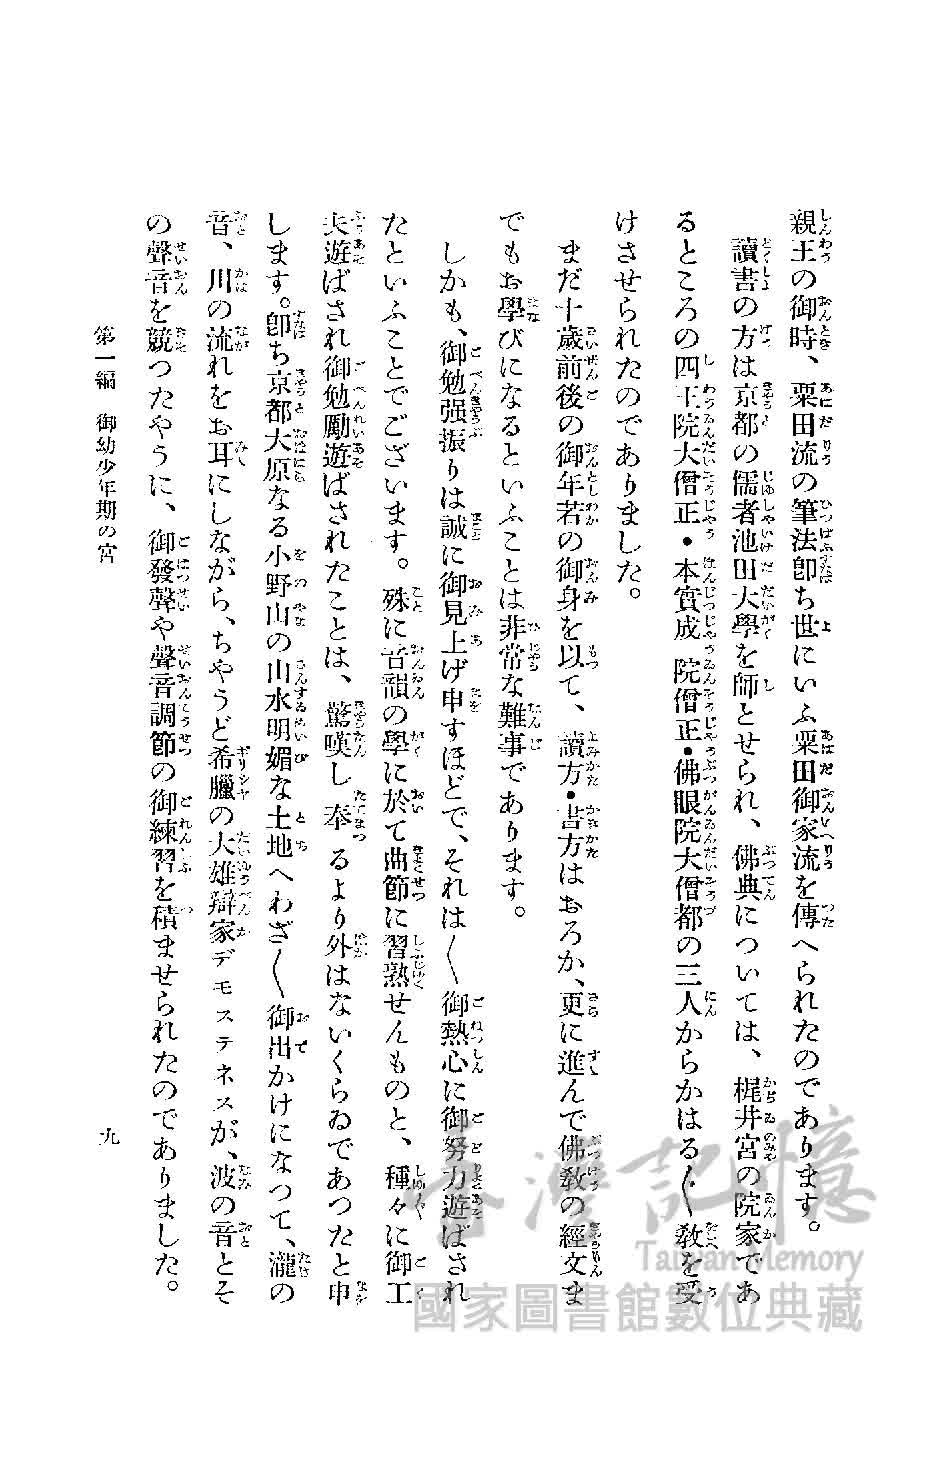 親王の御時、粟田流の筆法卽ち世にいふ粟田御家流を傳へられたのであります。
讀書の方は京都の儒者池田大學を師とせられ、佛典については、梶井宮の院家であ
るところの四王院大僧正・本實成院僧正・佛眼院大僧都の三人からかはる〱敎を受
けさせられたのでありました。
まだ十歲前後の御年若の御身を以て、讀方・書方はおろか、更に進んで佛敎の經文ま
でもお學びになるといふことは非常な難事であります。
しかも、御勉强振りは誠に御見上げ申すほどで、それは〱御熱心に御努力遊ばされ
たといふことでございます。殊に音韻の學に於て曲節に習熟せんものと、種々に御工
夫遊ばされ御勉勵遊ばされたことは、驚嘆し奉るより外はないくらゐであつたと申
します。卽ち京都大原なる小野山の山水明媚な土地へわざ〱御出かけになつて、瀧の
音、川の流れをお耳にしながら、ちやうど希臘の大雄辯家デモステネスが、波の音とそ
の聲音を競つたやうに、御發聲や聲音調節の御練習を積ませられたのでありました。
第一編 御幼少年期の宮
九
臺灣記憶
Taiwan Memory
國家圖書館數位典藏